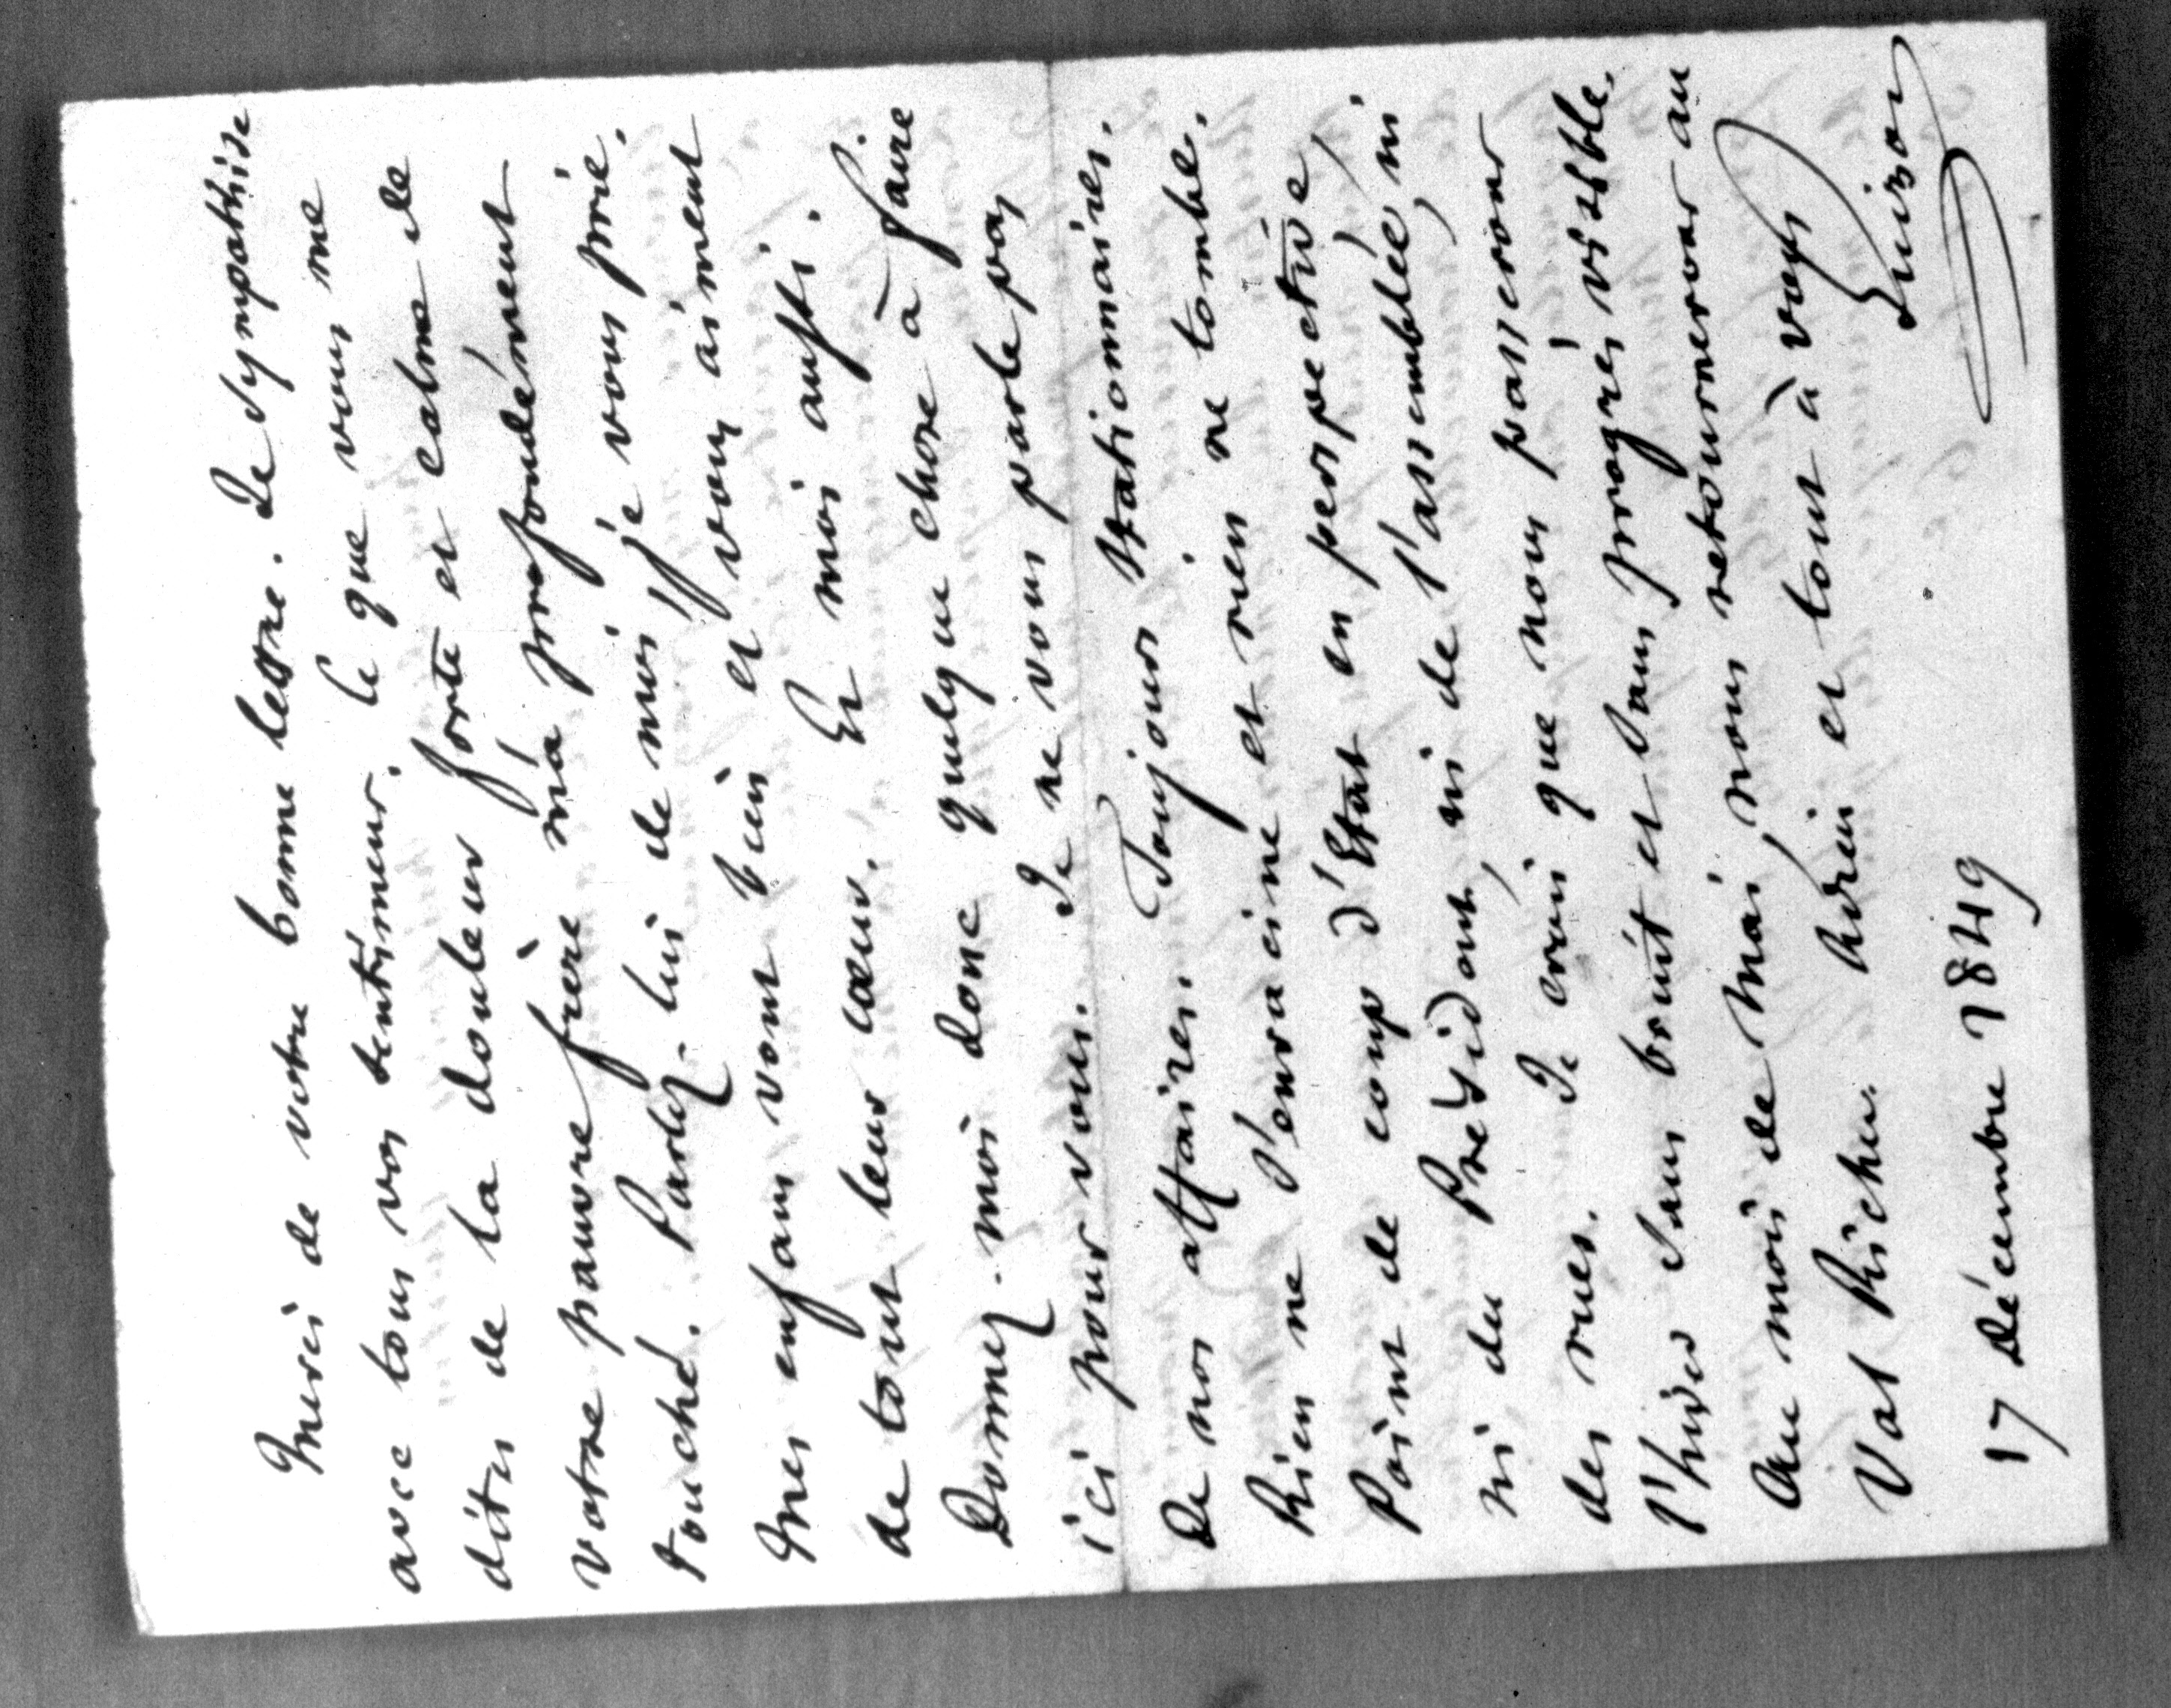 Merci de votre bonne lettre. Je sympathise
avec tous vos sentimens. Ce que vous me
dites de la douleur forte et calme de
votre pauvre frère m'a profondément
touché. Parlez-lui de moi, je vous prie.
Mes enfans vont bien et vous aiment
de tout leur cœur. Et moi aussi.
Donnez-moi donc quelque chose à faire
ici pour vous. Je ne vous parle pas
de nos affaires. Toujours stationnaires.
Rien ne s'enracine et rien ne tombe.
Point de coup d'Etat en perspective,
ni du Président, ni de l'assemblée, ni
des rues. Je crois que nous passerons
l'hiver sans bruit et sans progrès visible.
Au mois de Mai, nous retournerons au
Val Richer. Adieu et tout à vous
Guizot
17 Décembre 1849